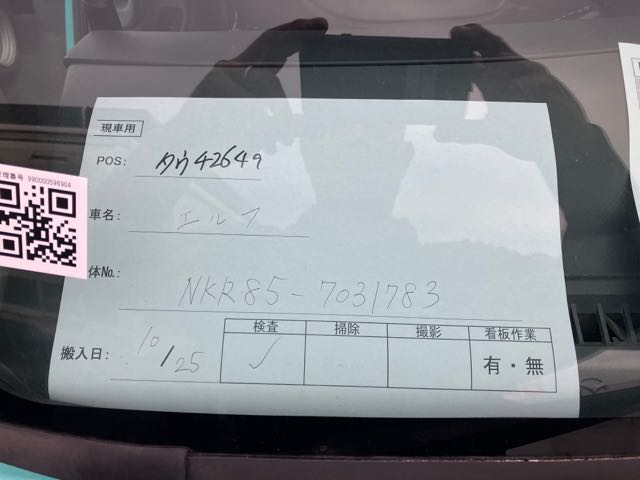 現車用
POS: タウ42649
管理番号 990000596904
車名: エルフ
体No.: NKR85-7031783
検査 掃除 撮影 看板作業
搬入日: 10/25 ✓ 有・無